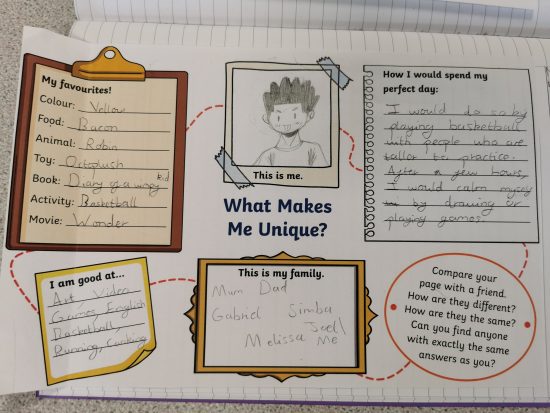 My favourites!
Colour: Yellow
Food: Bacon
Animal: Robin
Toy:
Book: Diary of a wimpy kid
Activity: Basketball
Movie: Wonder
This is me.
What Makes
Me Unique?
How I would spend my
perfect day:
I would do so by
playing basketball
with people who are
taller to practice.
After a few hours,
I would calm myself
by drawing or
playing games.
I am good at...
Art, Video
Games, English
Basketball,
Running, Cooking
This is my family.
Mum Dad
Gabriel Simba
Joell
Melissa Me
Compare your
page with a friend.
How are they different?
How are they the same?
Can you find anyone
with exactly the same
answers as you?